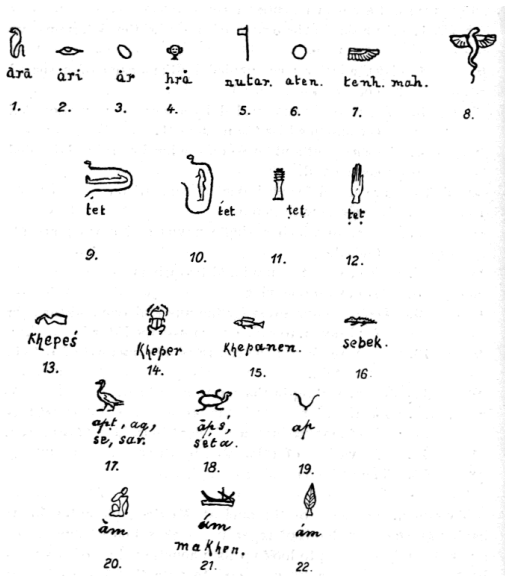 ârā ári ár ḥrâ nutar. aten. tenh. mah.
1. 2. 3. 4. 5. 6. 7. 8.
t́et t́et ṭeṭ ṭeṭ
9. 10. 11. 12.
Khepeś Kheper Khepanen. sebek.
13. 14. 15. 16
apt, aq, āpś, ap
se, sar. śeta.
17. 18. 19.
âm ám ám
makhen.
20. 21. 22.